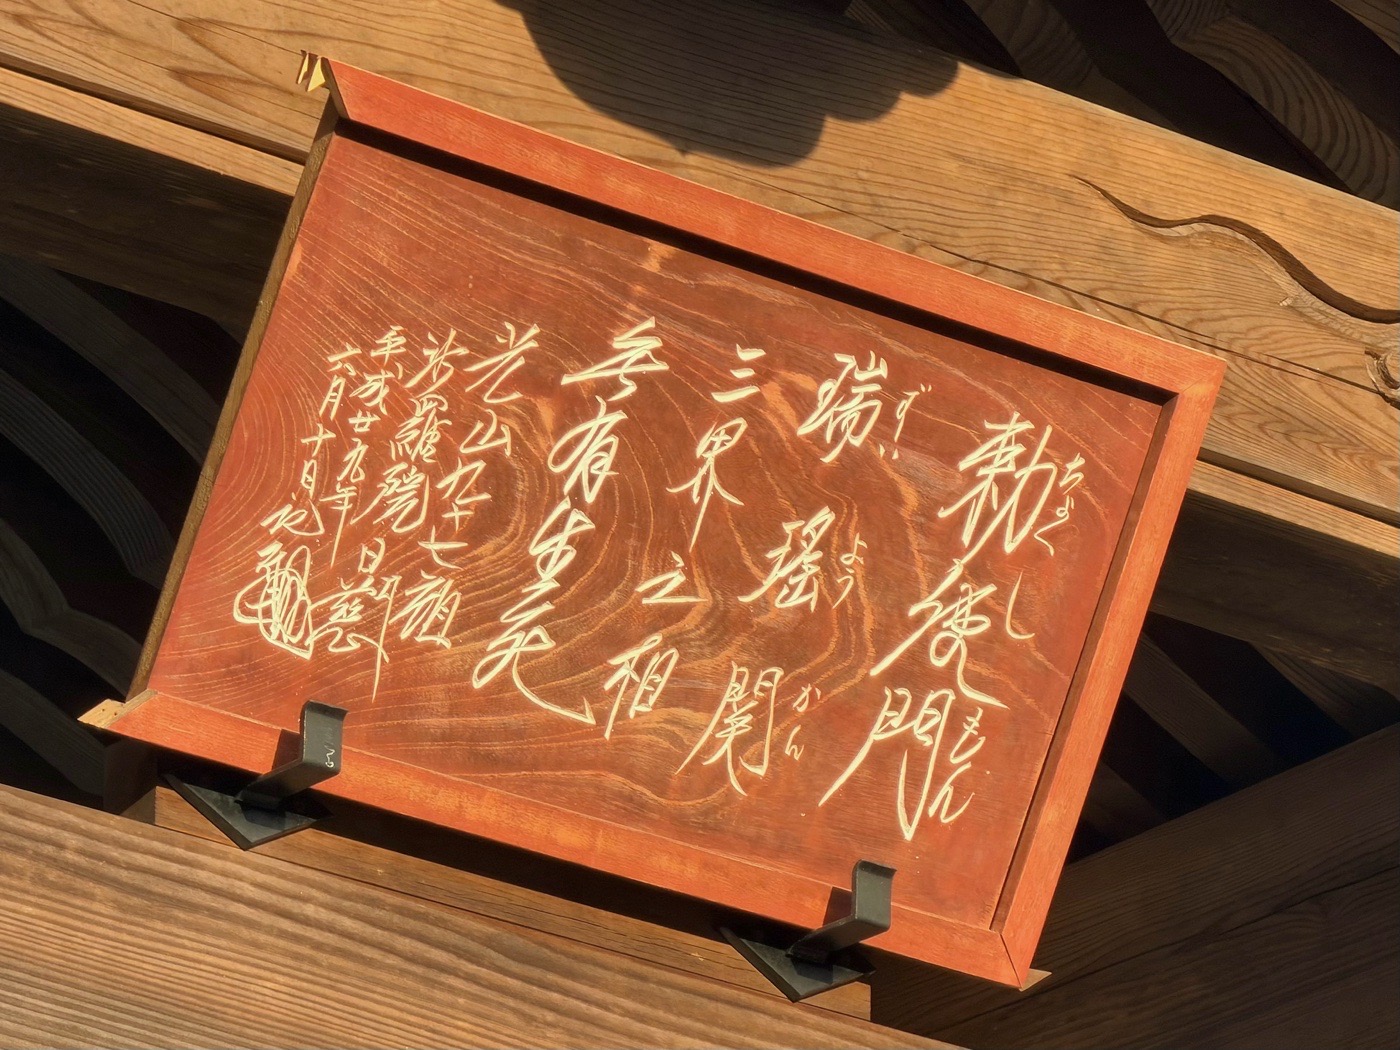 勅使門
ちょくしもん
瑞瑤関
ずいようかん
三界之相
無有生死
山九十七
沙羅院日慈
平成廿九年
六月十日記